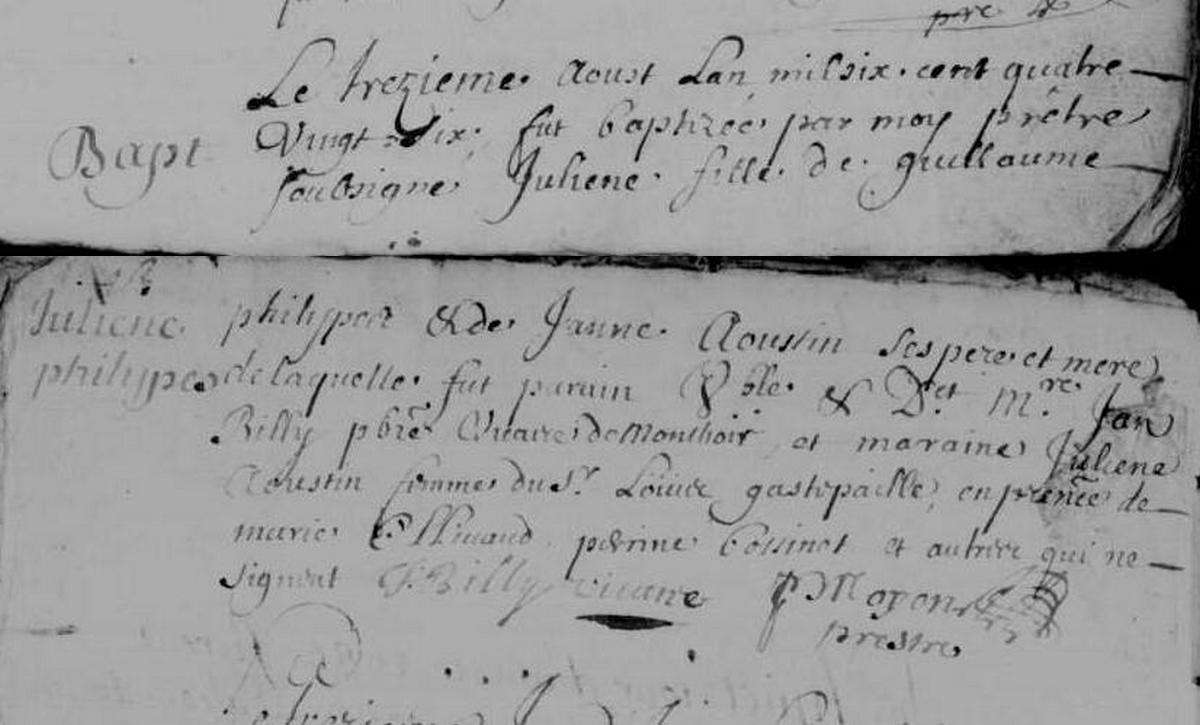 pre
Le trezieme Aoust Lan mil six cent quatre
Vingt Six fut baptizée par moy prêtre
Bapt
soubsigné Juliene fille de guillaume
Juliene philypes
philypes & de Janne Aoustin ses pere et mere
delaquelle fut parain Vble & Dct Mre Jan
Billy pbre Vicaire de Monthoir et maraine Juliene
Aoustin femme du Sr gastepaille en prēnce de
marie perine bossinot et autres qui ne
signent J. Billy vicaire P Moyon
prestre
Le